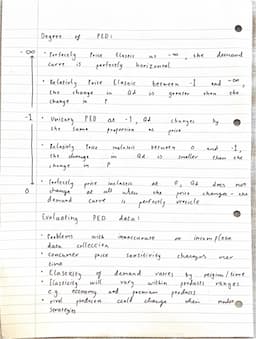 Degree of PED:
-∞
• Perfectly Price Elastic at -∞, the demand
curve is perfectly horizontal
• Relatively Price Elastic between -1 and -∞,
the change in Qd is greater than the
change in P
-1
• Unitary PED at -1, Qd changes by
the same proportion as price
• Relatively Price inelastic between 0 and -1,
the change in Qd is smaller than the
change in P
0
• Perfectly price inelastic at 0, Qd does not
change at all when the price changes - the
demand curve is perfectly
Evaluating PED data:
• Problems with inaccurate or incomplete
data collection
• Consumer price sensitivity changes over
time
• Elasticity of demand varies by region / time
• Elasticity will vary within products ranges
e.g. economy and premium products
• rival producers could change their
strategies